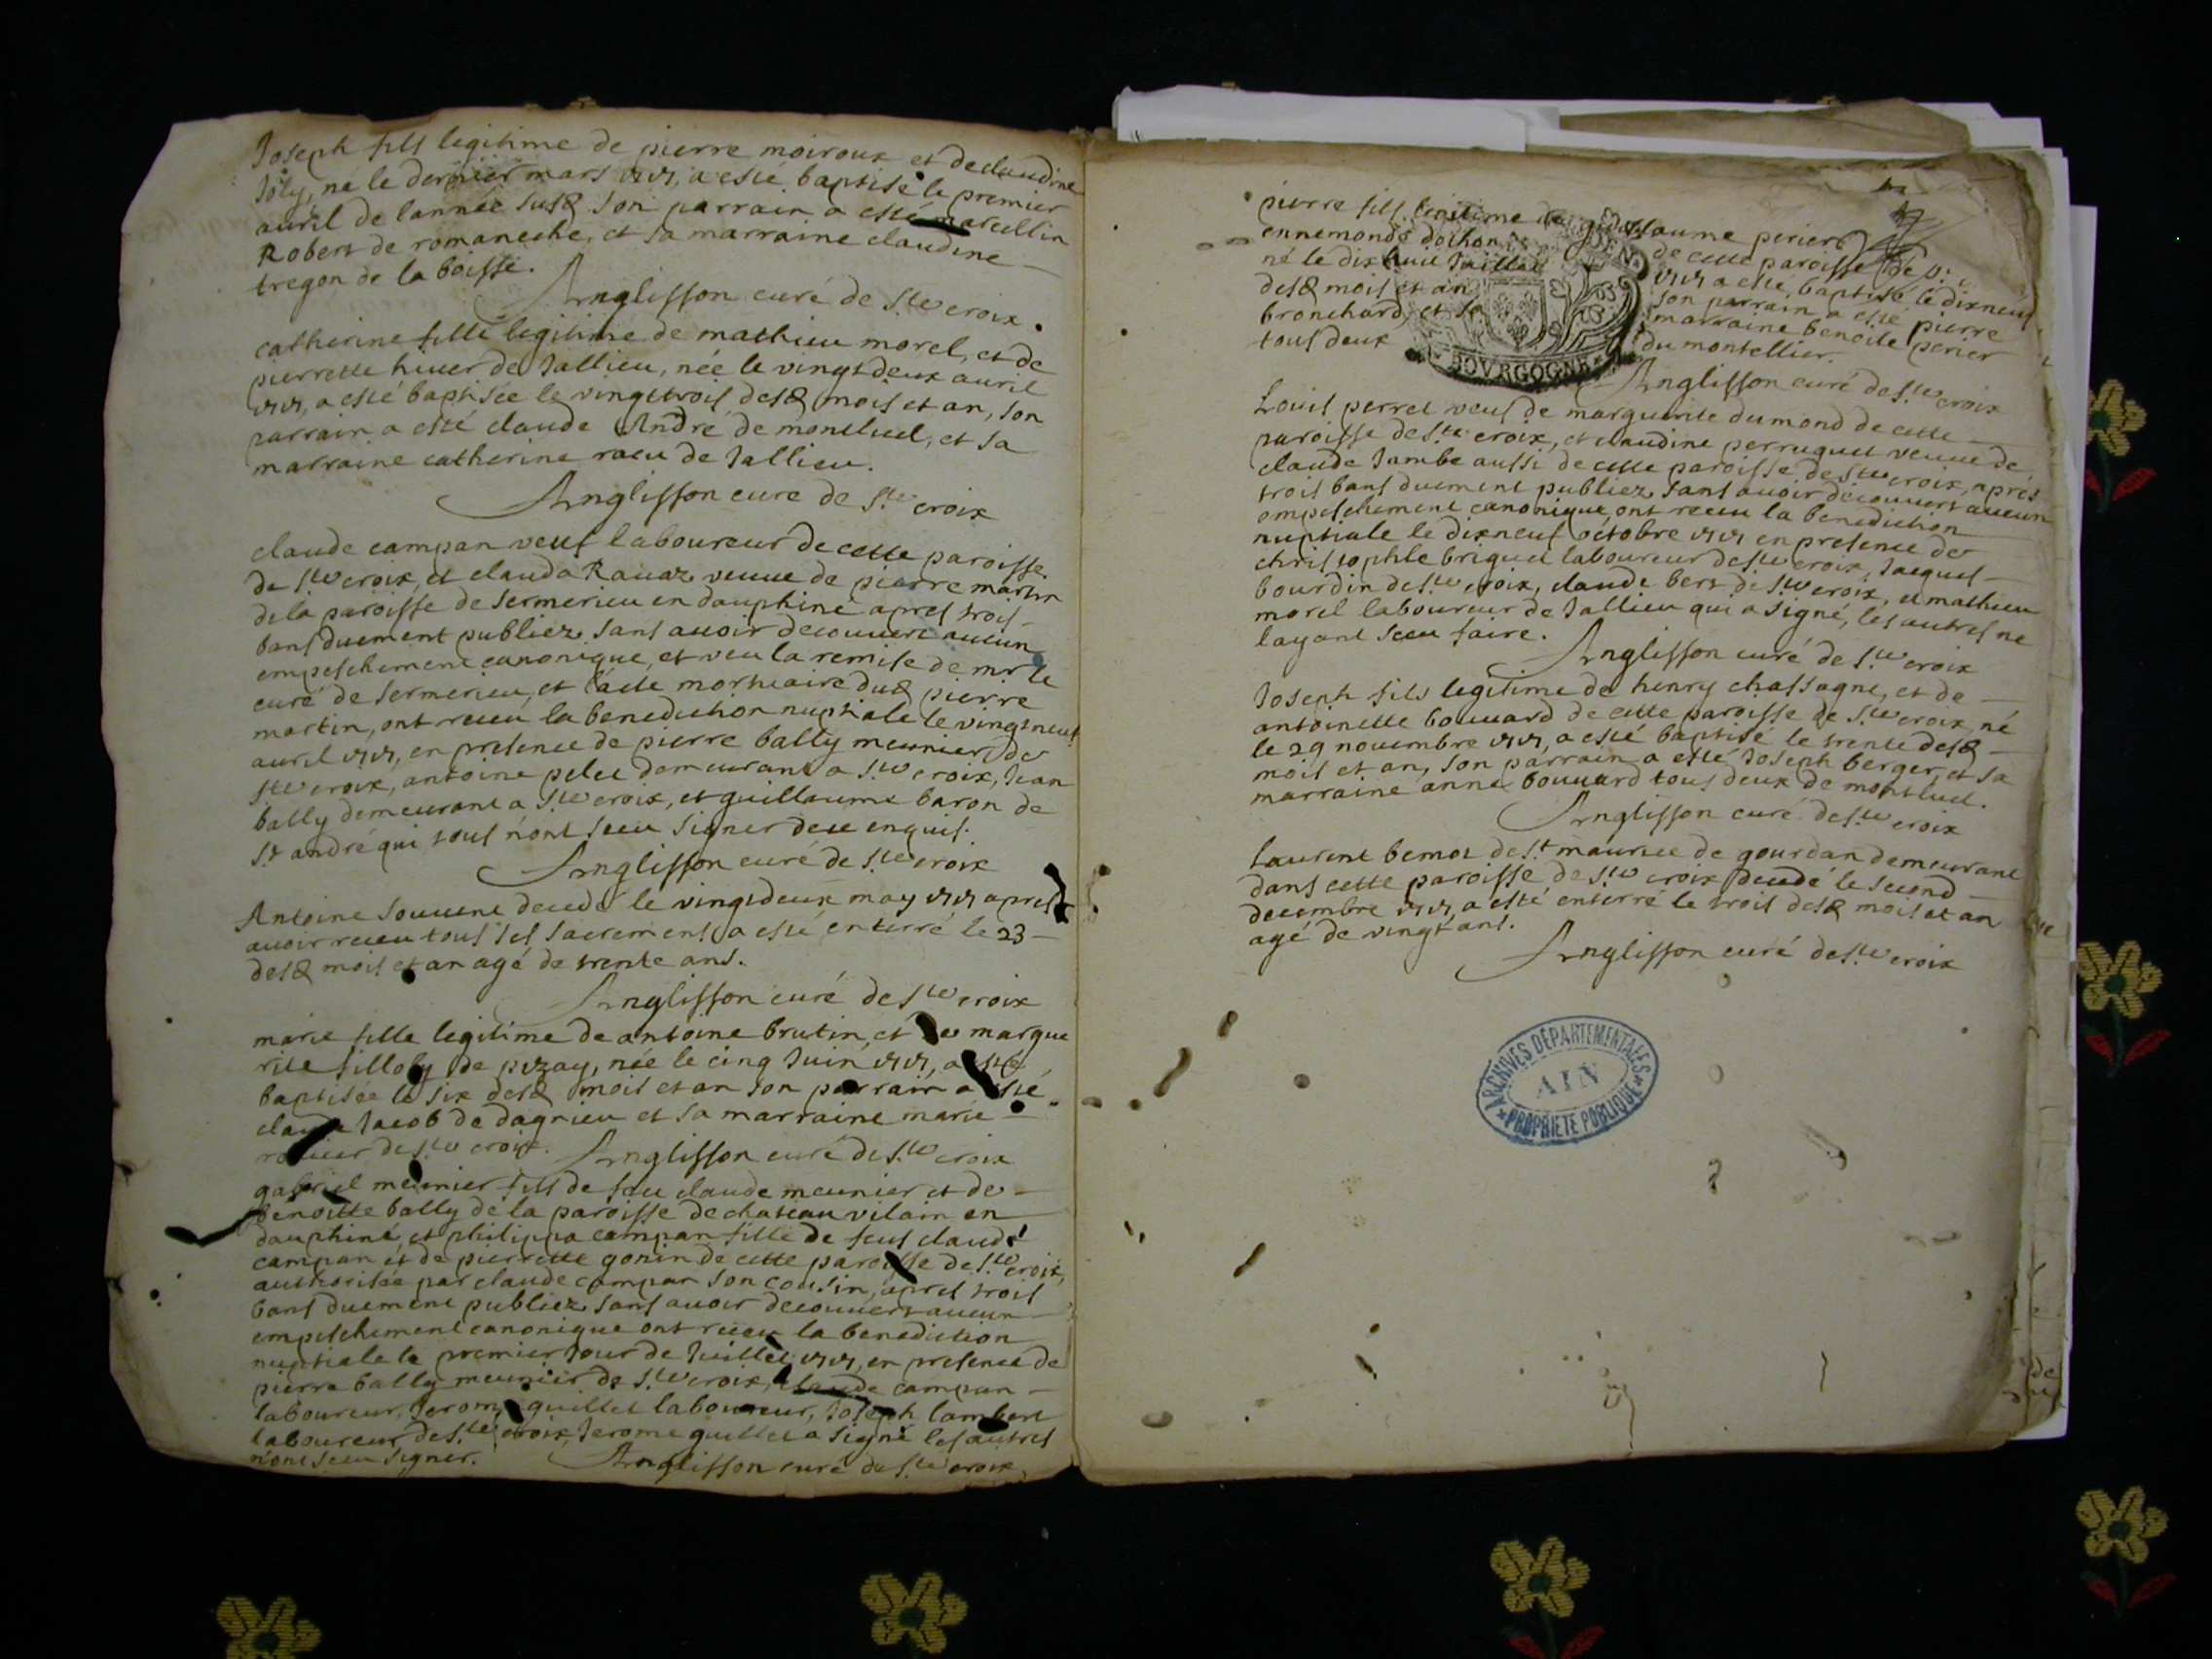 Joseph fils legitime de pierre moiroux et de claudine
Joly, né le dernier mars 1717, a esté baptisé le premier
avril de lannée susd son parrain a esté marcellin
Robert de romaneche, et sa marraine claudine
tregon de la boisse.
Anglisson curé de Ste croix.
catherine fille legitime de mathieu morel, et de
pierrette hiuer de Jallieu, née le vingtdeux auril
1717, a esté baptisée le vingttrois desd mois et an, son
parrain a esté claude André de montluel, et sa
marraine catherine raeu de Jallieu.
Anglisson curé de Ste croix
claude campan veuf laboureur de cette paroisse
de Ste croix, et clauda Rauaz veuue de pierre martin
de la paroisse de sermerieu en dauphiné apres trois
bans duement publiez sans auoir decouuert aucun
empeschement canonique, et veu la remise de mr le
curé de sermerieu, et l'acte mortuaire dud pierre
martin, ont receu la benediction nuptiale le vingtneuf
auril 1717, en presence de pierre bally meunier de
Ste croix, antoine pelet demeurant a Ste croix, Jean
bally demeurant a Ste croix, et guillaume baron de
St andré qui tous n'ont sceu signer de ce enquis.
Anglisson curé de Ste croix
Antoine Souuent decedé le vingtdeux may 1717 apres
auoir receu tous ses sacrements a esté enterré le 23
desd mois et an agé de trente ans.
Anglisson curé de Ste croix
marie fille legitime de antoine brutin, et de margue
rite filloby de pizay, née le cinq Juin 1717, a esté
baptisée le six desd mois et an son parrain a esté
claude Jacob de dagnieu et sa marraine marie
de Ste croix. Anglisson curé de Ste croix
gabriel meunier fils de feu claude meunier et de
benoitte bally de la paroisse de chateau vilain en
dauphiné, et philippa campan fille de feus claude
campan et de pierrette gonin de cette paroisse de Ste croix,
authorisée par claude campan son cousin, apres trois
bans duement publiez sans auoir decouuert aucun
empeschement canonique ont receu la benediction
nuptiale le premier Jour de Juillet 1717, en presence de
pierre bally meunier de Ste croix, claude campan
laboureur, Jerome guillet laboureur, Joseph lambert
laboureur de Ste croix, Jerome guillet a signé les autres
n'ont sceu signer. Anglisson curé de Ste croix
pierre fils legitime de guillaume perier
ennemonde dochon de cette paroisse de
né le dix huit Juillet 1717 a esté baptisé le dixneuf
desd mois et an son parrain a esté pierre
bronchard, et sa marraine benoite perier
tous deux du montellier.
BOVRGOGNE
Anglisson curé de Ste croix
Louis perret veuf de marguerite dumond de cette
paroisse de Ste croix, et claudine perruquet veuue de
claude Jambe aussi de cette paroisse de Ste croix, apres
trois bans duement publiez sans auoir decouuert aucun
empeschement canonique, ont receu la benediction
nuptiale le dixneuf octobre 1717 en presence de
christophle briquet laboureur de Ste croix, Jacques
bourdin de Ste croix, claude bert de Ste croix, et mathieu
morel laboureur de Jallieu qui a signé, les autres ne
layant sceu faire. Anglisson curé de Ste croix
Joseph fils legitime de henry chassagne, et de
antoinette bouuard de cette paroisse de Ste croix, né
le 29 nouembre 1717, a esté baptisé le trente desd
mois et an, son parrain a esté Joseph berger, et sa
marraine anne bouuard tous deux de montluel.
Anglisson curé de Ste croix
laurent bemot de St maurice de gourdan demeurant
dans cette paroisse de Ste croix decedé le second
decembre 1717, a esté enterré le trois desd mois et an
agé de vingt ans.
Anglisson curé de Ste croix
ARCHIVES DÉPARTEMENTALES
AIN
PROPRIÉTÉ PUBLIQUE